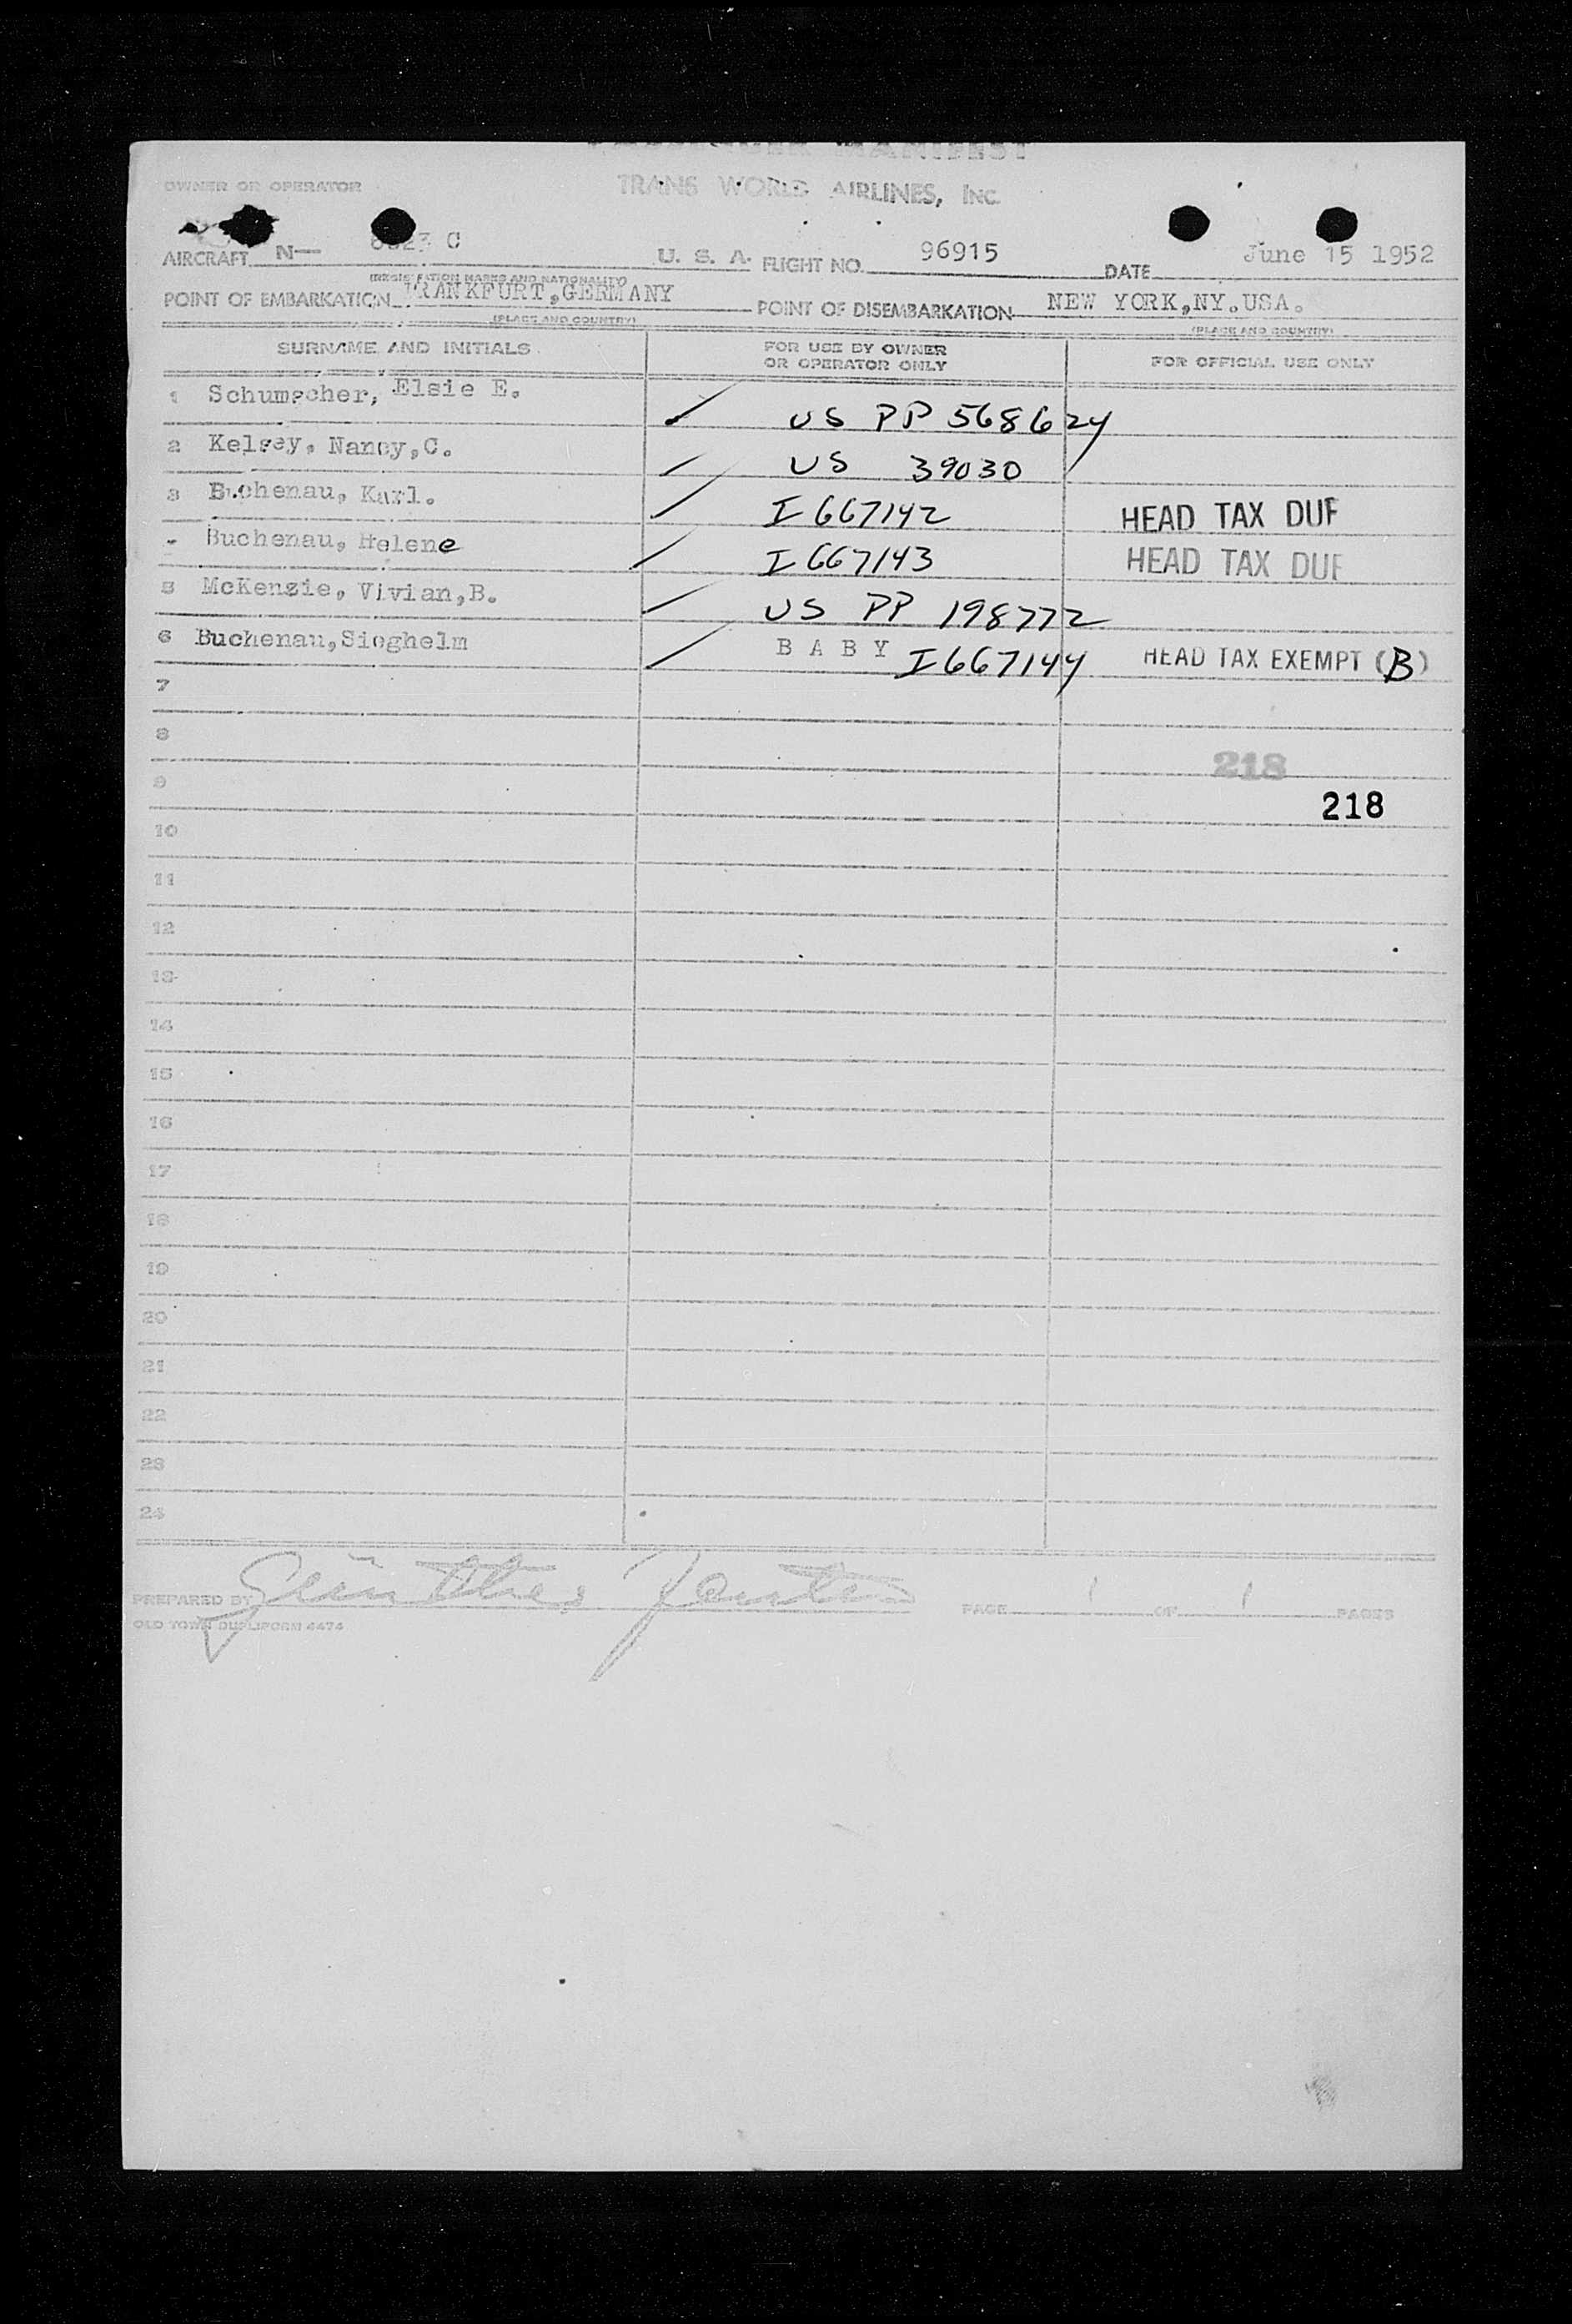 PASSENGER MANIFEST
OWNER OR OPERATOR
TRANS WORLD AIRLINES, INC.
AIRCRAFT N— C U. S. A. FLIGHT NO. 96915 DATE June 15 1952
(REGISTRATION MARKS AND NATIONALITY)
POINT OF EMBARKATION FRANKFURT,GERMANY POINT OF DISEMBARKATION NEW YORK,NY.USA.
(PLACE AND COUNTRY) (PLACE AND COUNTRY)
SURNAME AND INITIALS FOR USE BY OWNER OR OPERATOR ONLY FOR OFFICIAL USE ONLY
1 Schumacher, Elsie E. US PP 568624
2 Kelsey, Nancy,C. US 39030
3 Buchenau, Karl. I 667142 HEAD TAX DUE
Buchenau, Helene I 667143 HEAD TAX DUE
5 McKenzie, Vivian,B. US PP 198772
6 Buchenau,Sieghelm BABY I 667144 HEAD TAX EXEMPT (B)
7
8
218
9
218
10
11
12
13
14
15
16
17
18
19
20
21
22
23
24
PREPARED BY PAGE 1 OF 1 PAGES
OLD TOWN DUPLIFORM 4474